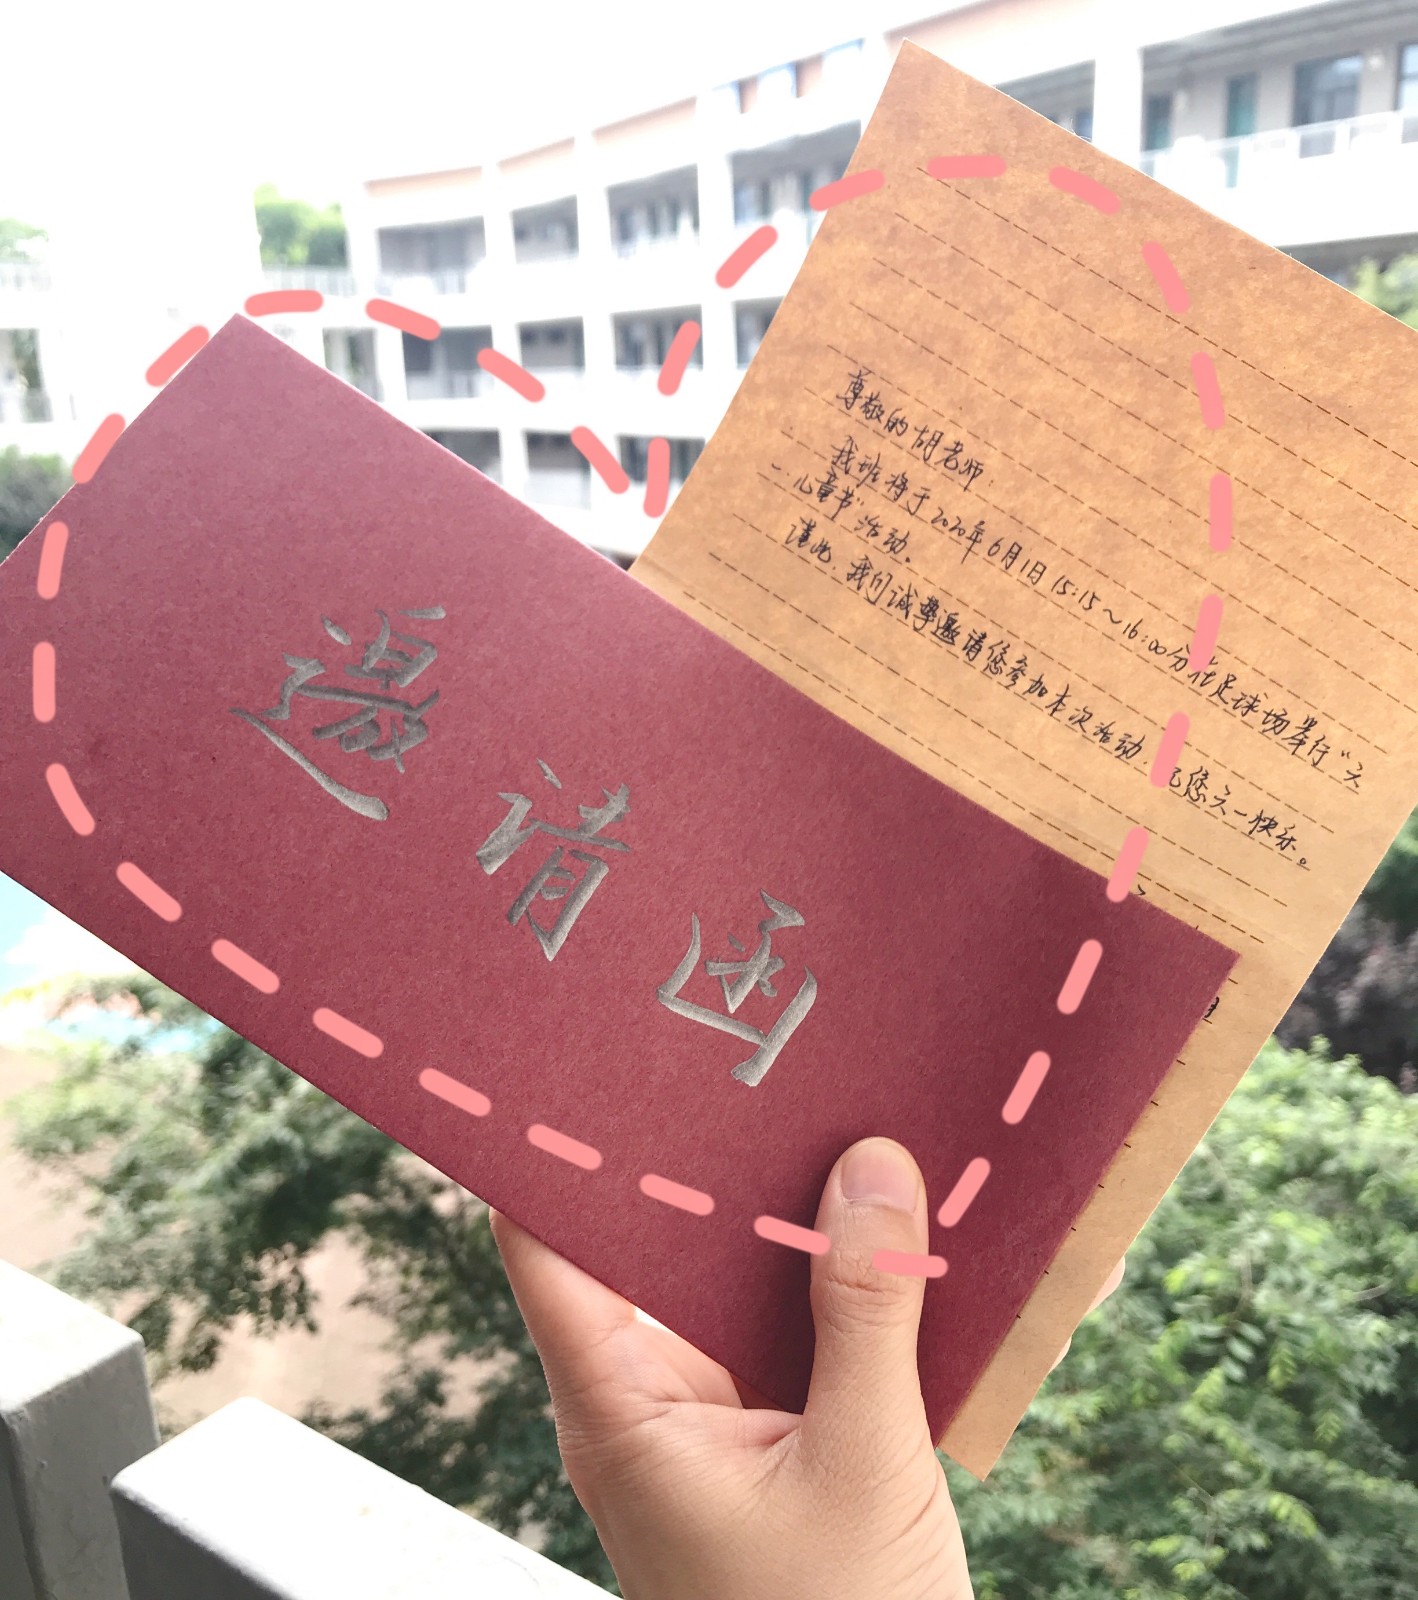 邀请函
尊敬的胡老师：
我班将于2020年6月1日15:15～16:00分在足球场举行“六
一儿童节”活动。
谨此，我们诚挚邀请您参加本次活动，祝您六一快乐。